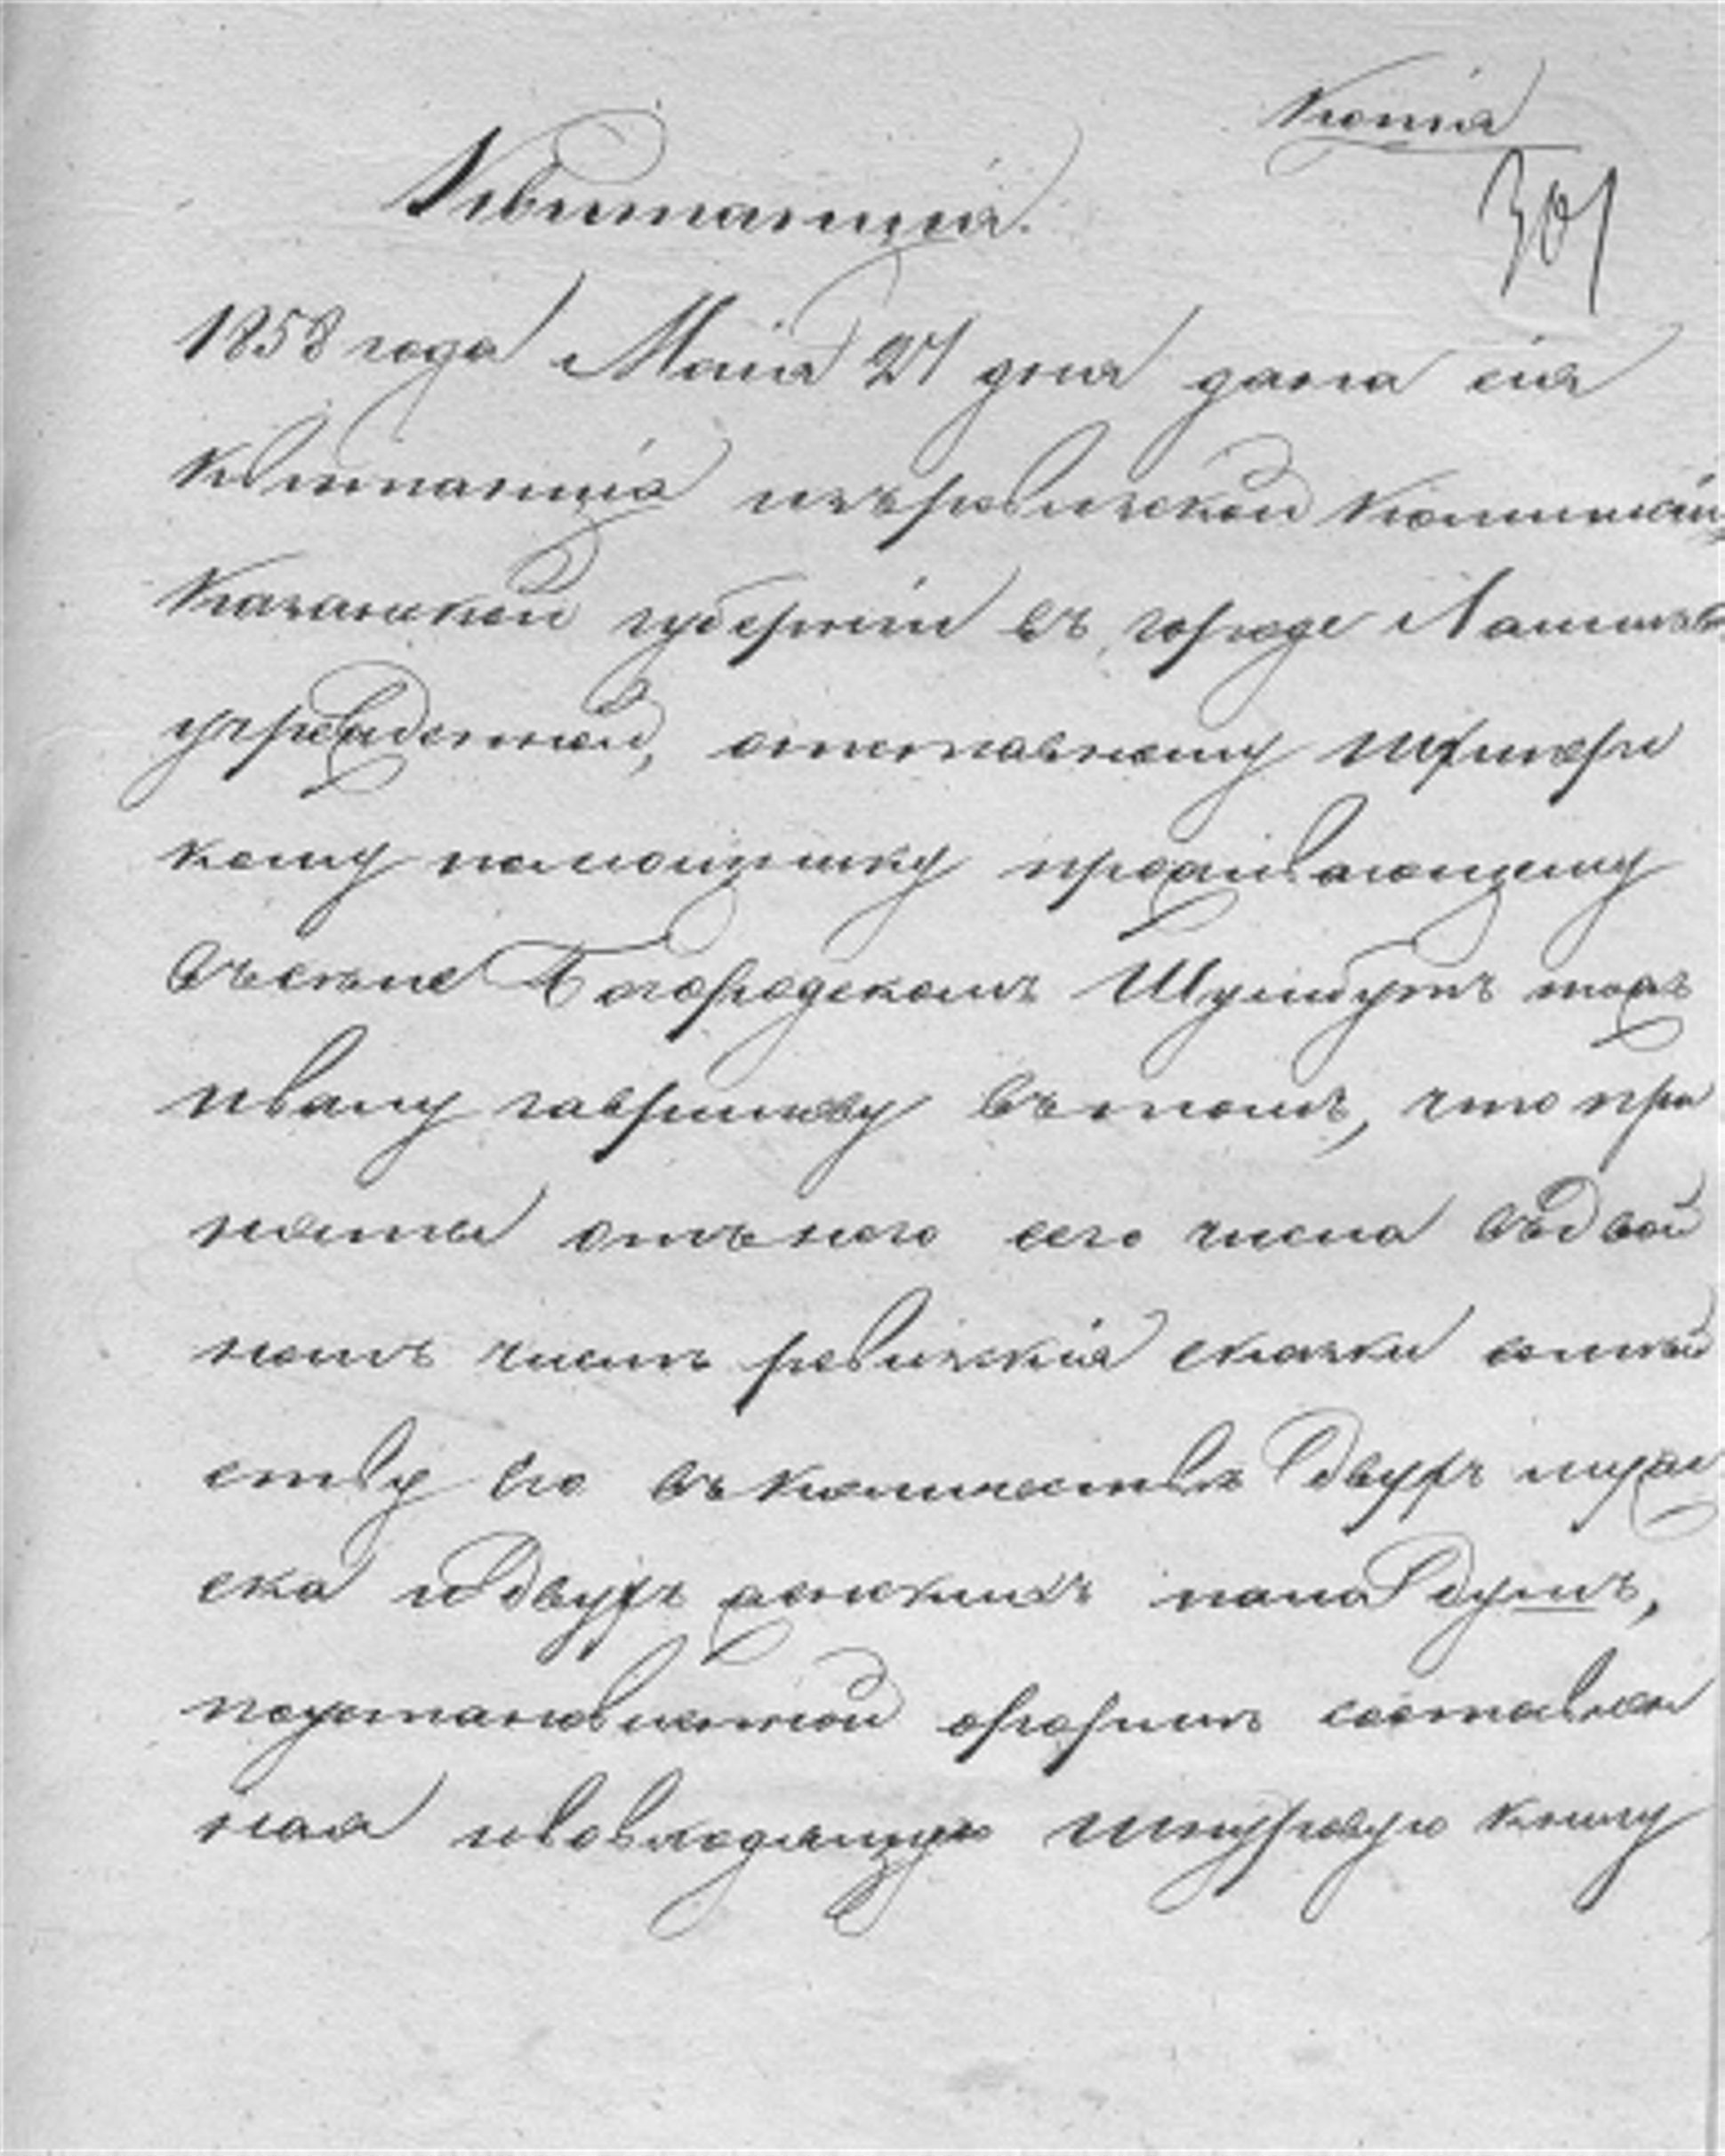 Копія
301
Квитанція.
1858 года Маія 27 дня дана сія
квитанція изъ ревизской Коммисіи,
Казанской губерніи въ городе Лаишевѣ
учрежденной, отставному
кому помощнику проживающему
въ селѣ Богородскомъ Шумбутъ тожъ
Ивану Гаврилову въ томъ, что при
няты отъ него сего числа въ двой
номъ числѣ ревизскія сказки семей
ству его въ количествѣ двухъ муже
ска и двухъ женскихъ пола душъ,
по установленной формѣ составлен
ная и во входящую шнуровую книгу